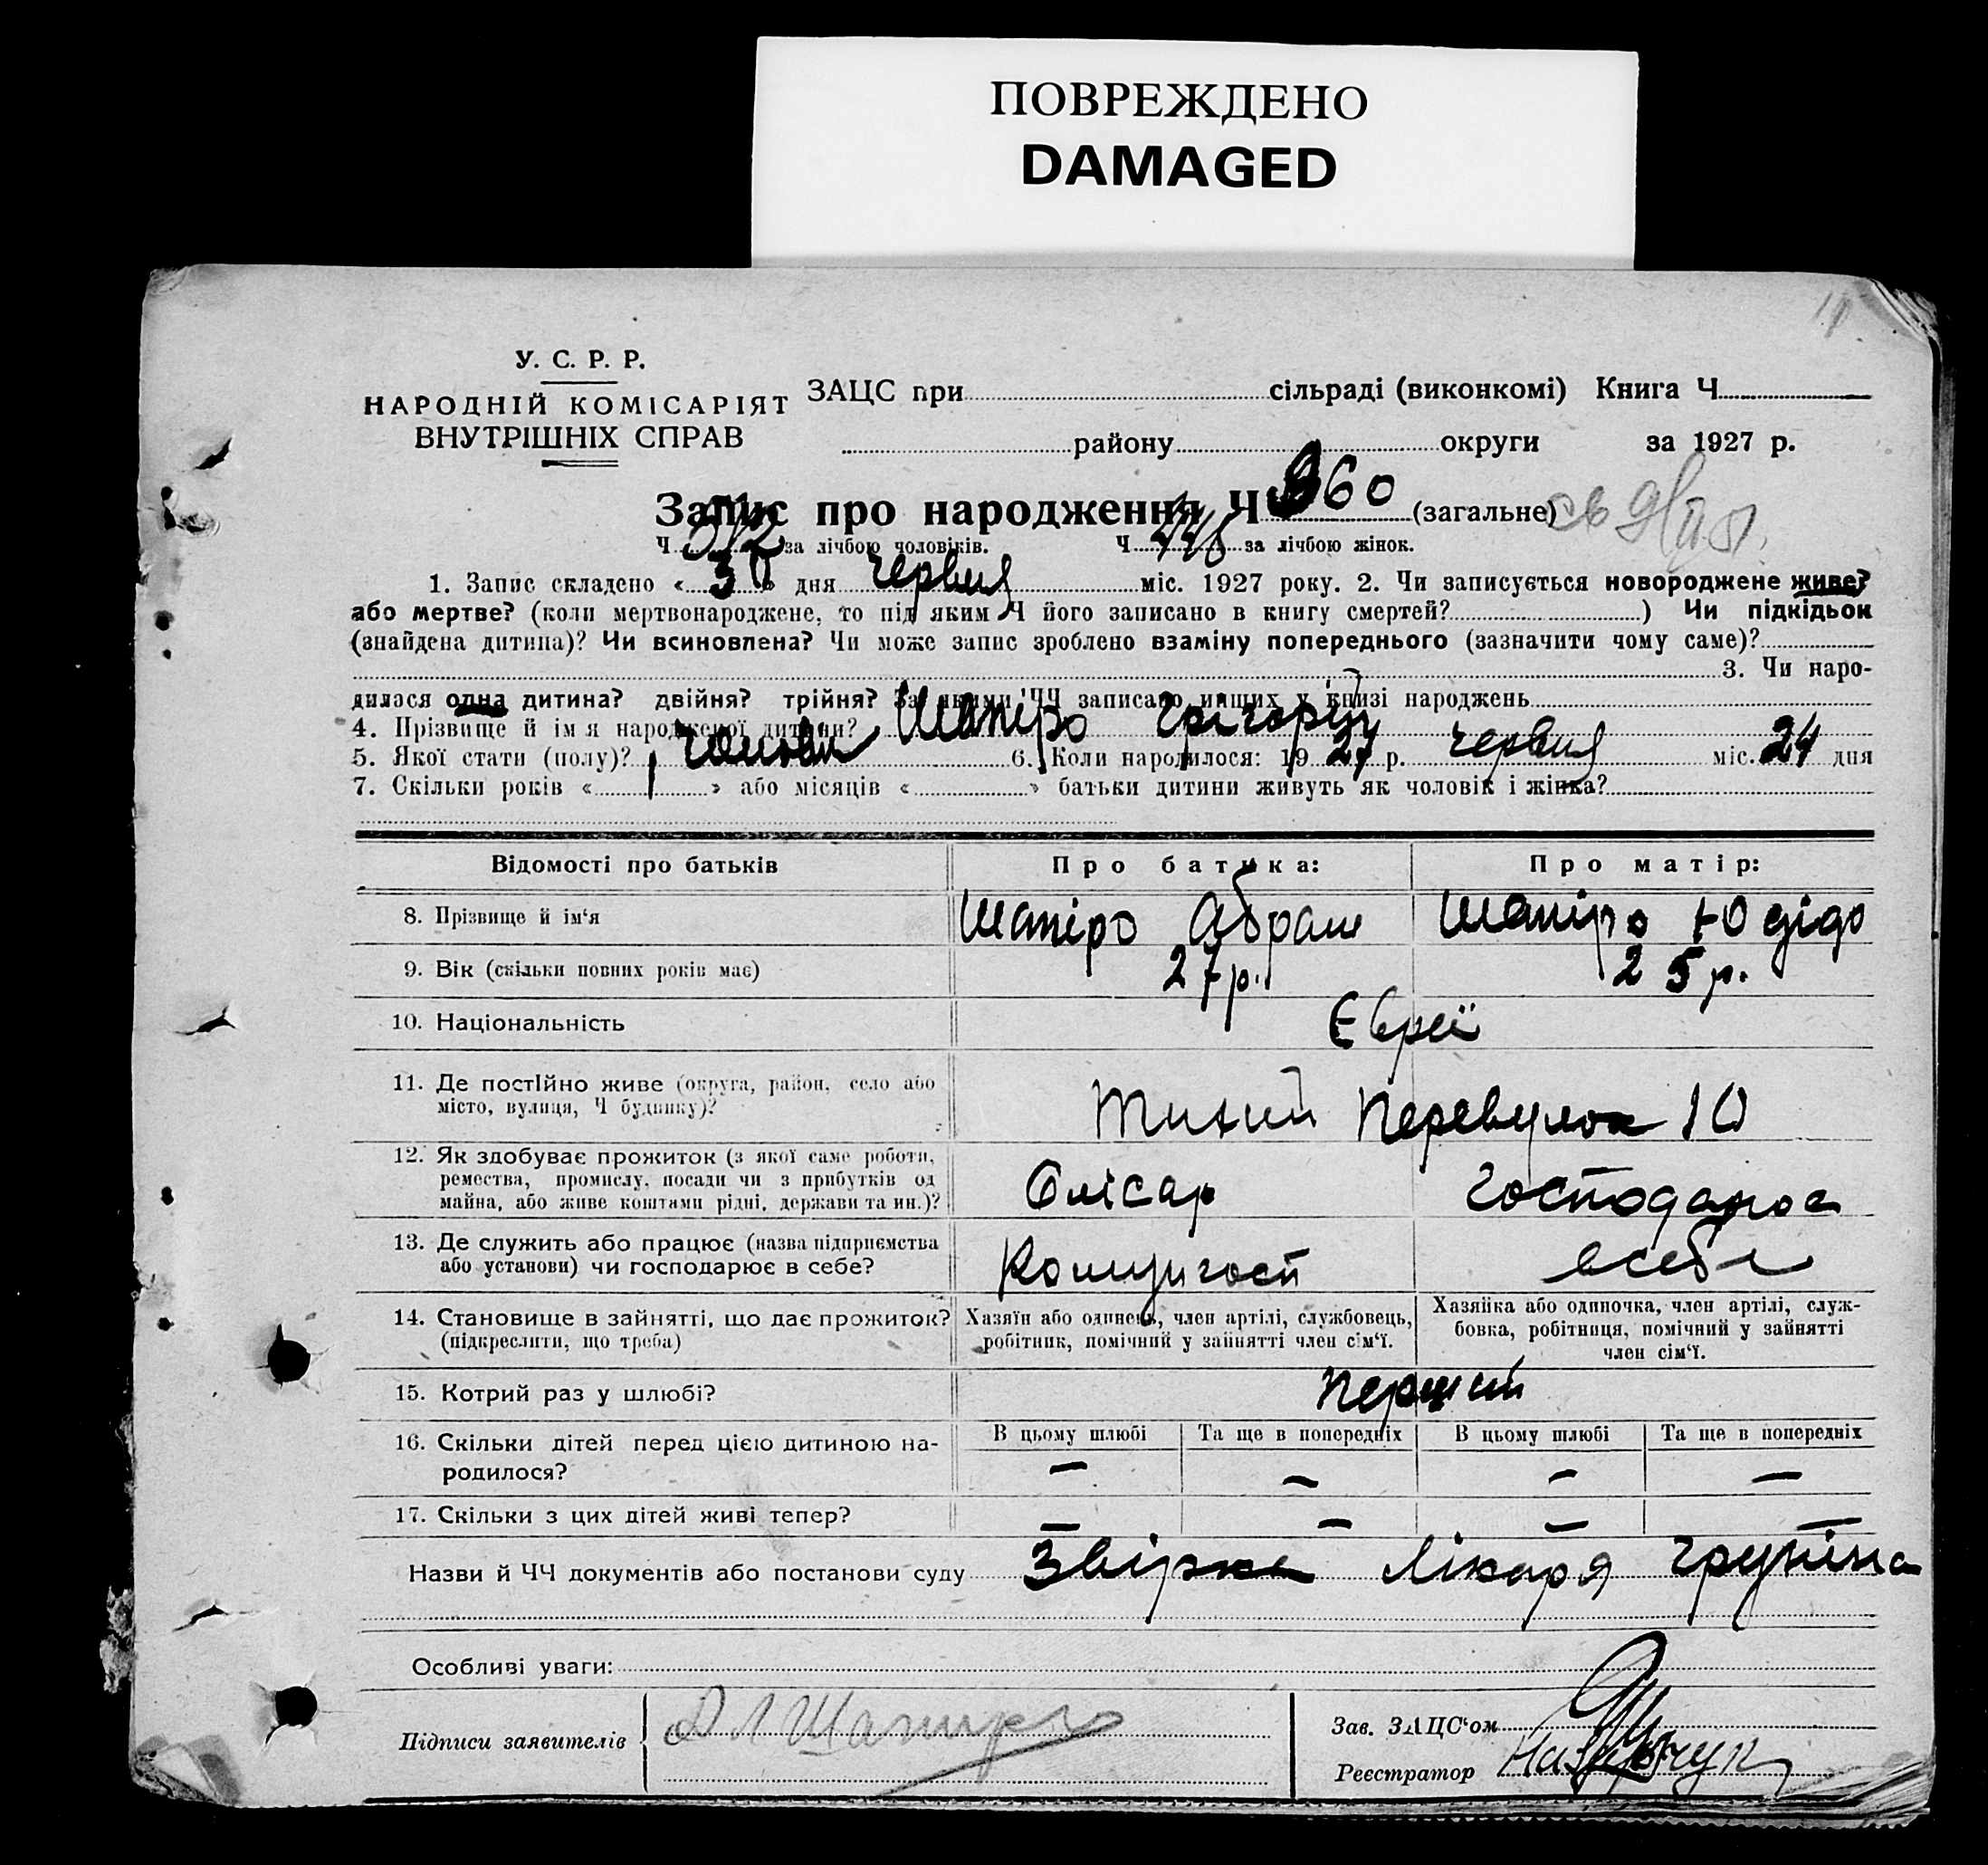 ПОВРЕЖДЕНО
DAMAGED
У. С. Р. Р.
НАРОДНІЙ КОМІСАРІЯТ
ВНУТРІШНІХ СПРАВ
ЗАЦС при сільраді (виконкомі) Книга Ч
району округи за 1927 р.
Запис про народження Ч 960 (загальне)
Ч 512 за лічбою чоловіків. Ч 448 за лічбою жінок.
1. Запис складено « 30 » дня червня міс. 1927 року. 2. Чи записується новороджене живе?
або мертве? (коли мертвонароджене, то під яким Ч його записано в книгу смертей? ) Чи підкідьок
(знайдена дитина)? Чи всиновлена? Чи може запис зроблено взаміну попереднього (зазначити чому саме)?
3. Чи наро-
дилася одна дитина? двійня? трійня? За якими ЧЧ записано инших у книзі народжень
4. Прізвище й ім'я народженої дитини? Шапіро Грігорій
5. Якої стати (полу)? чолові 6. Коли народилося: 1927 р. червня міс. 24 дня
7. Скільки років « 1 » або місяців « » батьки дитини живуть як чоловік і жінка?
Відомості про батьків Про батька: Про матір:
8. Прізвище й ім'я Шапіро Абрам Шапіро Юдідо
9. Вік (скільки повних років має) 27 р. 25 р.
10. Національність Євреї
11. Де постІйно живе (округа, район, село або
місто, вулиця, Ч будинку)? Тихий Перевулок 10
12. Як здобуває прожиток (з якої саме роботи,
ремества, промислу, посади чи з прибутків од
майна, або живе коштами рідні, держави та ин.)? Слісар
13. Де служить або працює (назва підприємства
або установи) чи господарює в себе? в себе
14. Становище в зайнятті, що дає прожиток?
(підкреслити, що треба)
Хазяїн або одинець, член артілі, службовець,
робітник, помічний у зайнятті член сім'ї.
Хазяйка або одиночка, член артілі, служ-
бовка, робітниця, помічний у зайнятті
член сім'ї.
15. Котрий раз у шлюбі? Перший
16. Скільки дітей перед цією дитиною на-
родилося?
В цьому шлюбі Та ще в попередніх В цьому шлюбі Та ще в попередніх
— — — —
17. Скільки з цих дітей живі тепер? — — — —
Назви й ЧЧ документів або постанови суду Звірка Лікаря
Особливі уваги:
Підписи заявителів Шапиро
Зав. ЗАЦС'ом
Реєстратор Назарчук